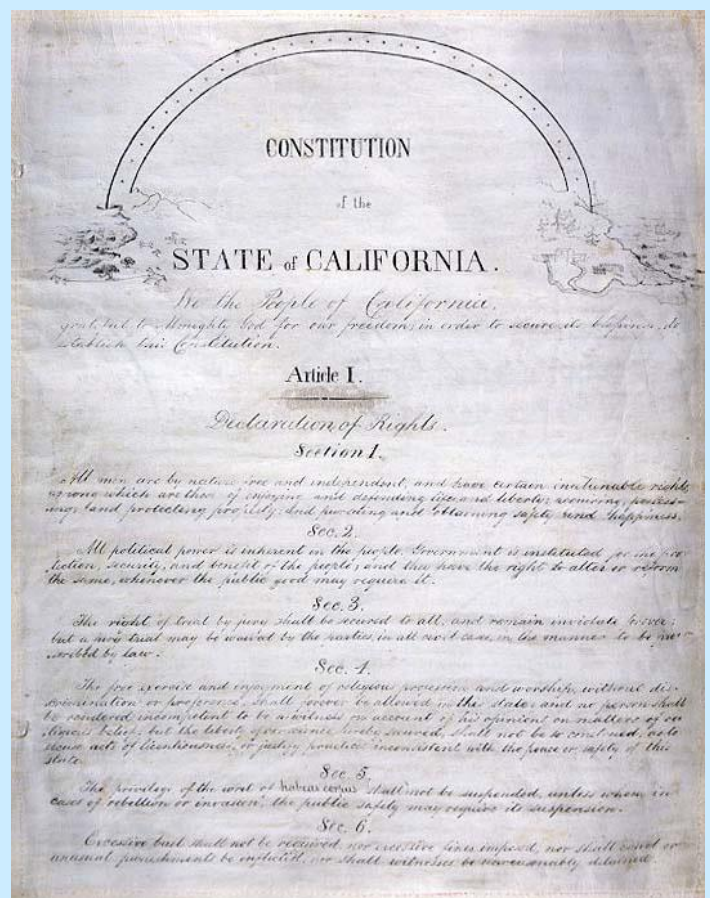 CONSTITUTION
of the
STATE of CALIFORNIA.
We the People of California,
grateful to Almighty God for our freedom: in order to secure its blessings, do
establish this Constitution.
Article I.
Declaration of Rights.
Section 1.
All men are by nature free and independent, and have certain inalienable rights,
among which are those of enjoying and defending life and liberty: acquiring, possess-
ing, and protecting property: and pursuing and obtaining safety and happiness.
Sec. 2.
All political power is inherent in the people. Government is instituted for the pro-
tection, security, and benefit of the people; and they have the right to alter or reform
the same, whenever the public good may require it.
Sec. 3.
The right of trial by jury shall be secured to all, and remain inviolate forever;
but a jury trial may be waived by the parties, in all civil cases, in the manner to be pre-
scribed by law.
Sec. 4.
The free exercise and enjoyment of religious profession and worship, without dis-
crimination or preference, shall forever be allowed in this state: and no person shall
be rendered incompetent to be a witness on account of his opinions on matters of re-
ligious belief; but the liberty of conscience hereby secured, shall not be so construed, as to
excuse acts of licentiousness, or justify practices inconsistent with the peace or safety of this
state.
Sec. 5.
The privilege of the writ of habeas corpus shall not be suspended, unless when, in
cases of rebellion or invasion, the public safety may require its suspension.
Sec. 6.
Excessive bail shall not be required, nor excessive fines imposed, nor shall cruel or
unusual punishments be inflicted, nor shall witnesses be unreasonably detained.